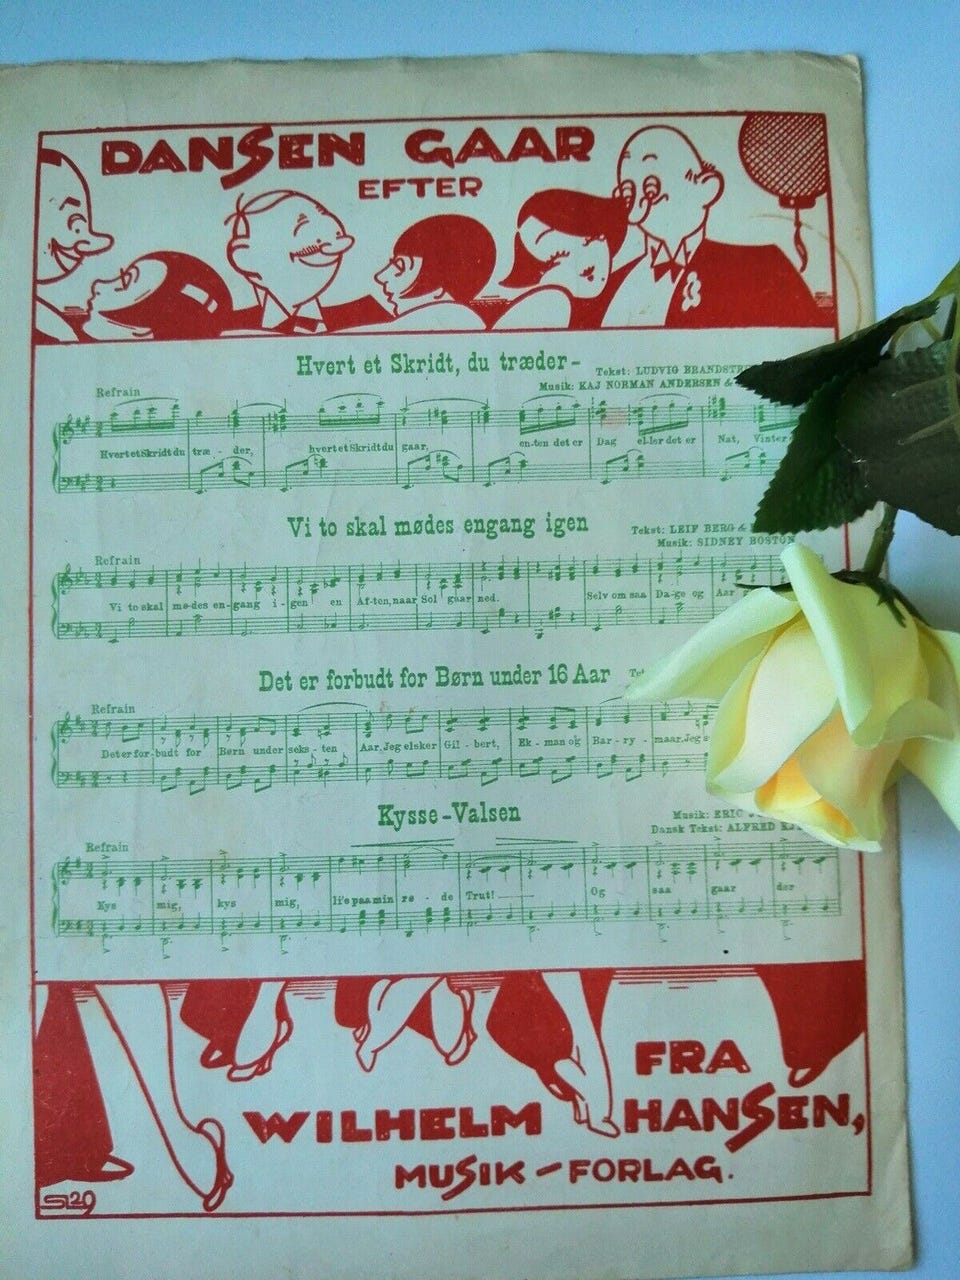 DANSEN GAAR
EFTER
Hvert et Skridt, du træder-
Tekst: LUDVIG
Musik: KAJ NORMAN ANDERSEN &
Refrain
Hvert et Skridt du træ - der, hvert et Skridt du gaar, en-ten det er Dag el-ler det er Nat, Vinter
Vi to skal mødes engang igen
Tekst: LEIF BERG &
Musik: SIDNEY BOSTON
Refrain
Vi to skal mø-des en-gang i-gen en Af-ten, naar Sol gaar ned. Selv om saa Da-ge og Aar
Det er forbudt for Børn under 16 Aar
Refrain
Det er for-budt for Børn under seks-ten Aar. Jeg elsker Gil-bert, Ek-man og Bar-ry-maar. Jeg
Kysse-Valsen
Musik: ERIC
Dansk Tekst: ALFRED
Refrain
Kys mig, kys mig, li'e paa min rø-de Trut! Og saa gaar der
FRA
WILHELM HANSEN,
MUSIK - FORLAG.
SL29